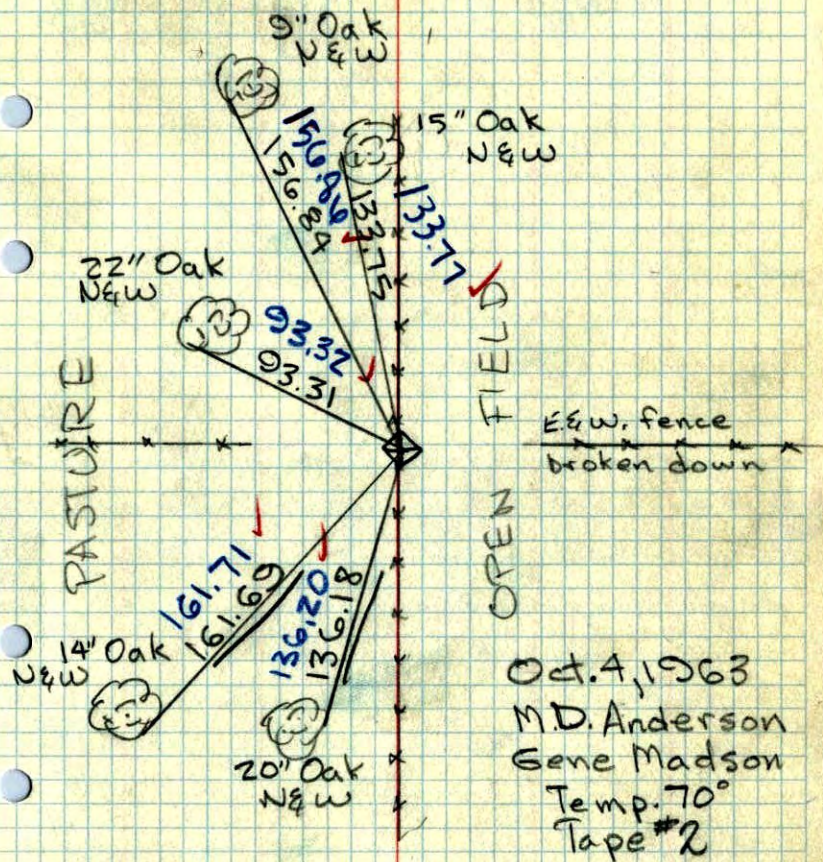 9" Oak
N & W
15" Oak
N & W
156.86
156.84
133.75
133.77
22" Oak
N & W
93.32
93.31
PASTURE
OPEN FIELD
E. & W. fence
broken down
161.71
161.69
136.20
136.18
14" Oak
N & W
20" Oak
N & W
Oct. 4, 1963
M.D. Anderson
Gene Madson
Temp. 70°
Tape #2